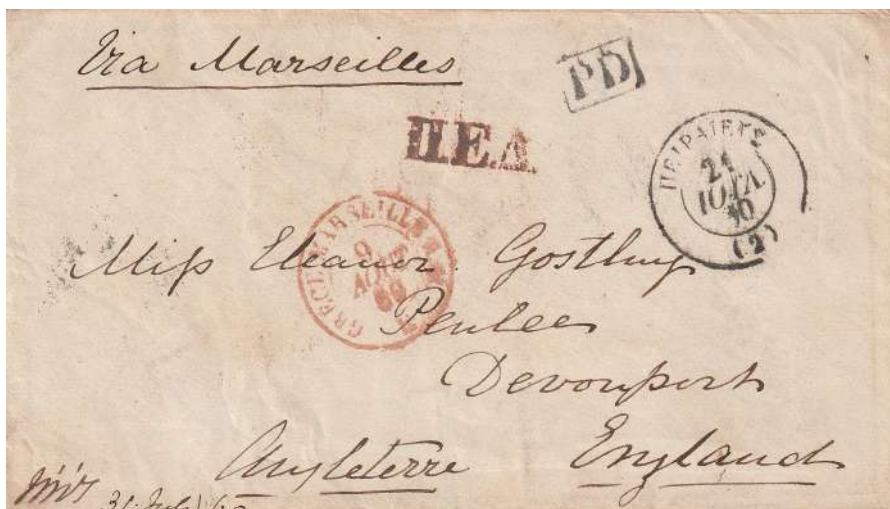 Via Marseilles
PD
Π.Ε.Δ.
ΠΕΙΡΑΙΕΥΣ
ΙΟΥΛ
60
(2)
GRECE MARSEILLE
9
AOUT
60
Miss Eleanor Gostling
Penlee
Devonport
Angleterre England